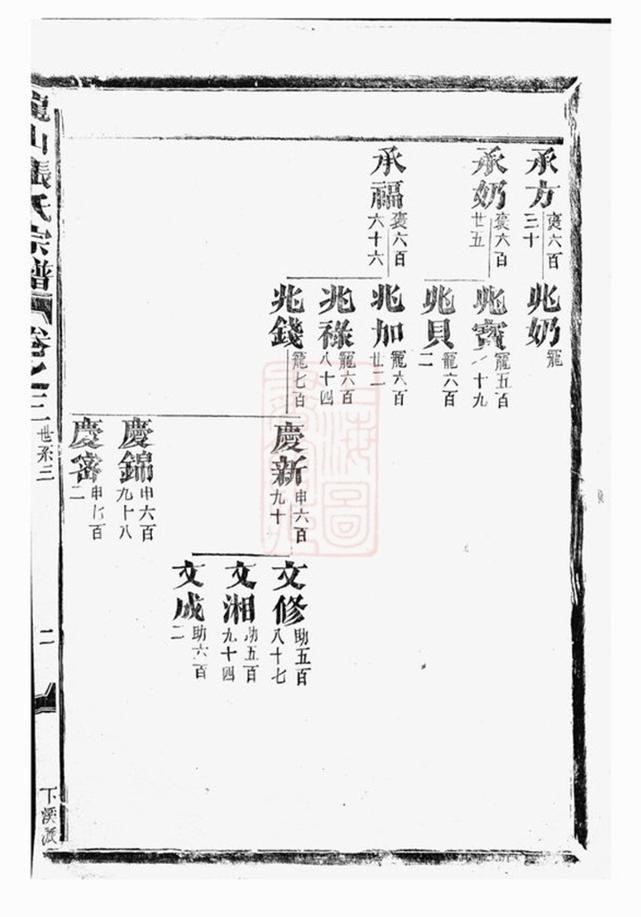 承方
褒六百
三十
兆奶
寵
承奶
褒六百
廿五
兆寶
寵五百
十九
兆貝
寵六百
二
承福
褒六百
六十六
兆加
寵六百
廿二
兆祿
寵六百
八十四
兆錢
寵七百
慶新
申六百
九十
文修
助五百
八十七
文湘
助五百
九十四
文成
助六百
二
慶錦
申六百
九十八
慶
申七百
二
龍山張氏宗譜
卷之三
世系三
二
下溪派